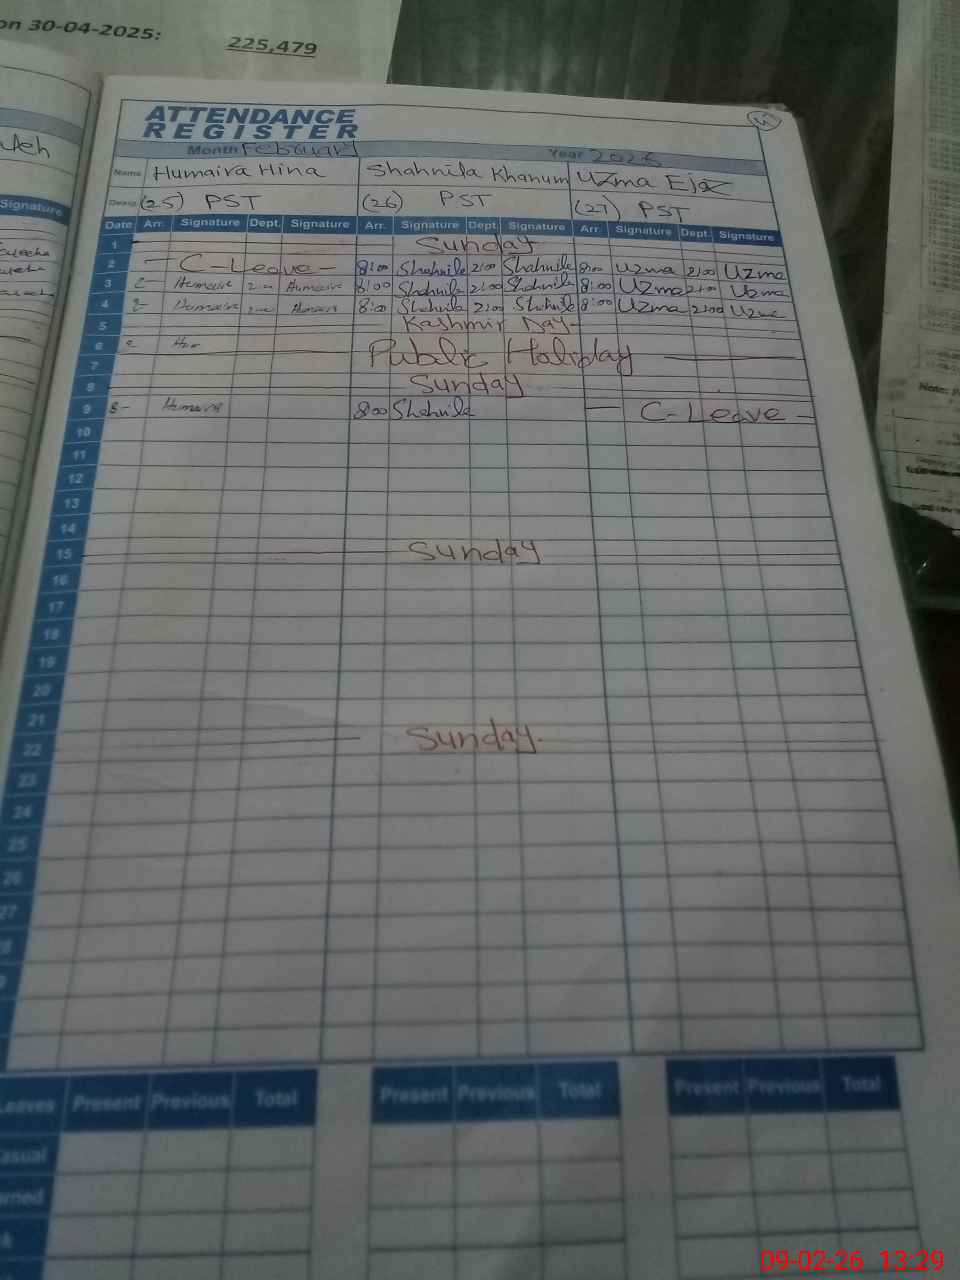 on 30-04-2025:
225,479
ATTENDANCE
REGISTER
Month February Year 2026
Name Humaira Hina Shahnila Khanum Uzma Ejaz
Desig. (25) PST (26) PST (27) PST
Signature
Date Arr. Signature Dept. Signature Arr. Signature Dept. Signature Arr. Signature Dept. Signature
1 Sunday
2 - C-Leave - 8:00 Shahnila 2:00 Shahnila 8:00 Uzma 2:00 Uzma
3 Humaira 2:00 Humaira 8:00 Shahnila 2:00 Shahnila 8:00 Uzma 2:00 Uzma
4 Humaira Humaira 8:00 Shahnila 2:00 Shahnila 8:00 Uzma 2:00 Uzma
5 Kashmir Day-
6 Hum
7 Public Holiday
8 Sunday
9 8- Humaira 8:00 Shahnila - C-Leave -
10
11
12
13
14
15 Sunday
16
17
18
19
20
21
22 Sunday.
23
24
25
26
27
Leaves Present Previous Total Present Previous Total Present Previous Total
asual
rned
k
09-02-26 13:29